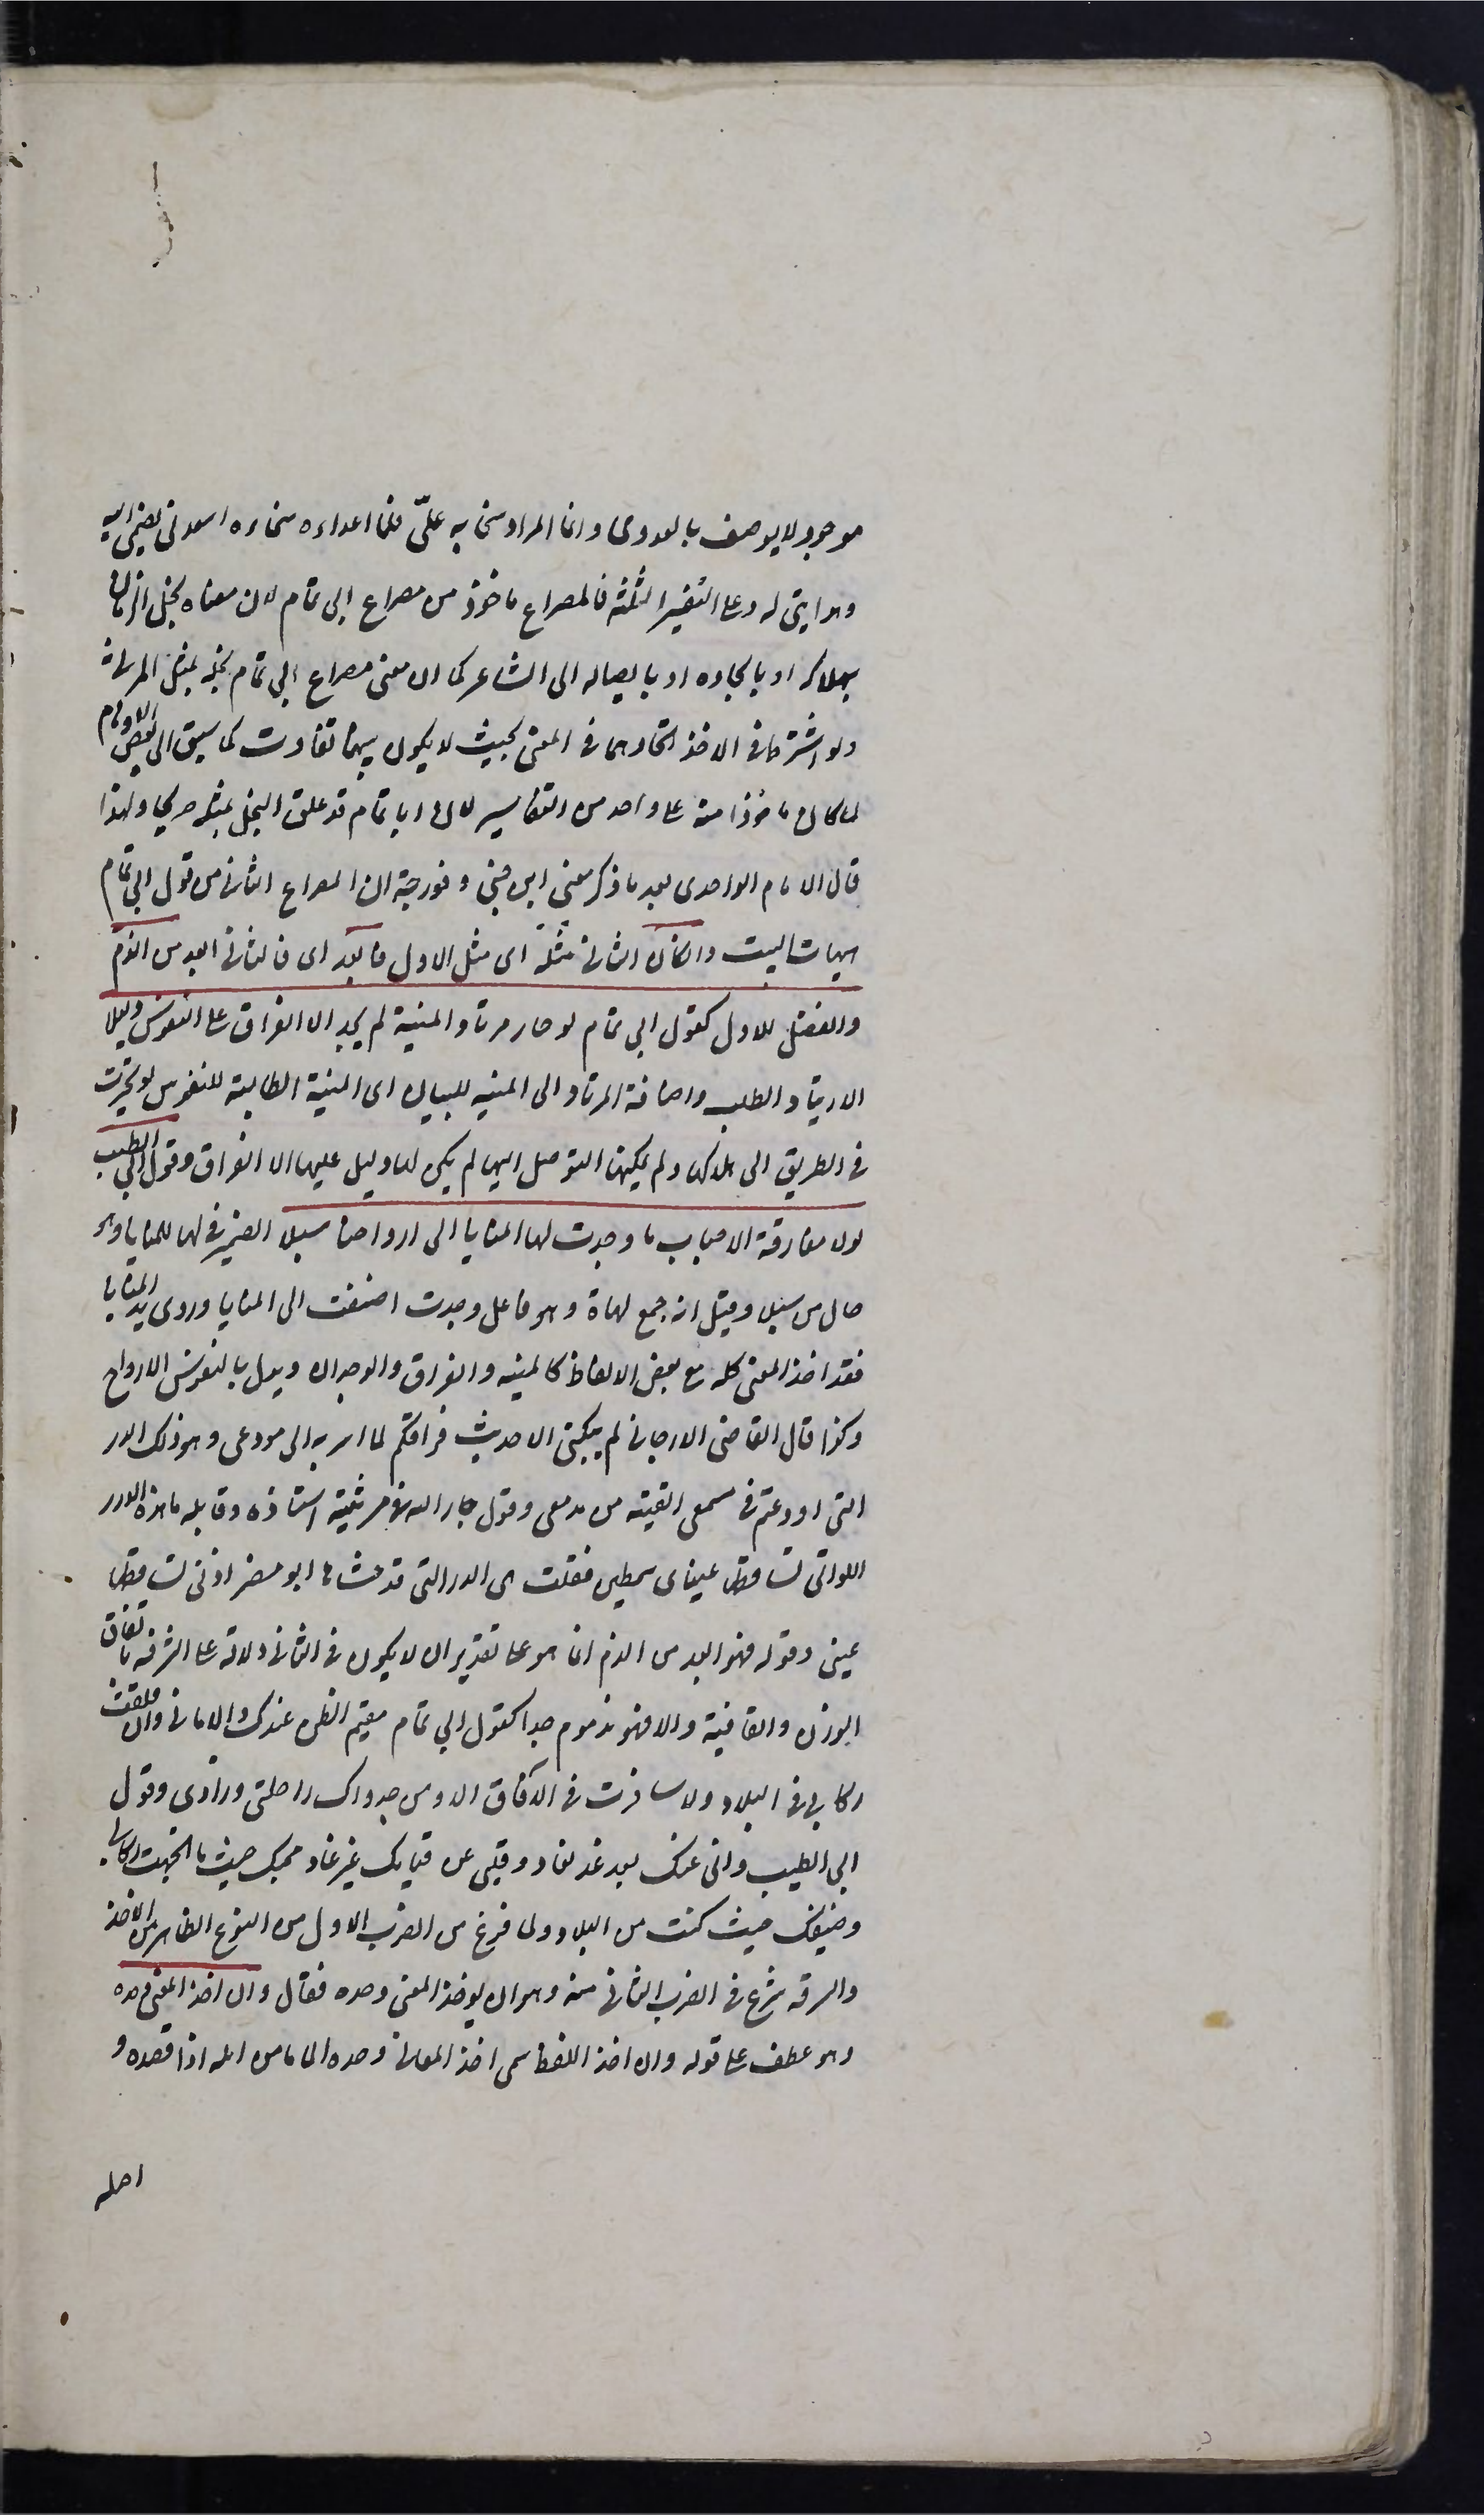 موجود لا يوصف بالعدوى وانما المراد سخا به علىّ فلما اعداه سخاءه اسعدنى بضمى اليه
وهدايتى له وعلى التفاسير الثلثة فالمصراع ماخوذ من مصراع ابى تمام لان معناه بخل الزمان
بهلاكه او بايجاده او بايصاله الى الشاعر كما ان معنى مصراع ابى تمام بخله بمثل المرثى
ولو اشترط فى الاخذ اتحادهما فى المعنى بحيث لا يكون بينهما تفاوت كما سبق الى بعض الاوهام
لما كان ماخوذا منه على واحد من التفاسير لان ابا تمام قد علق البخل بمثله صريحا ولهذا
قال الامام الواحدى بعد ما ذكر معنى ابن جنى وفورجة ان المصراع الثانى من قول ابى تمام
هيهات البيت وان كان الثانى مثله اى مثل الاول فابعد اى فالثانى ابعد من الذم
والفضل للاول كقول ابى تمام لو حار مرتاد المنية لم يجد الا الفراق على النفوس دليلا
الارتياد الطلب واضافة المرتاد الى المنيه للبيان اى المنية الطالبة للنفوس لو تحيرت
فى الطريق الى هلاكها ولم يمكنها التوصل اليها لم يكن لها دليل عليها الا الفراق وقول ابى الطيب
لولا مفارقة الاحباب ما وجدت لها المنايا الى ارواحنا سبلا الضمير فى لها للمنايا وهو
حال من سبلا وقيل انه جمع لهاة وهو فاعل وجدت اضيفت الى المنايا وروى يد المنايا
فقد اخذ المعنى كله مع بعض الالفاظ كالمنيه والفراق والوجدان وبدل بالنفوس الارواح
وكذا قال القاضى الارجانى لم يبكنى الا حديث فراقكم لما اسر به الى مودعى وهو ذلك الدر
التى اودعتم فى مسمعى القيته من مدمعى وقول جار الله فى مرثية استاذه وقايله ما هذه الدرر
اللواتى تساقطها عيناى سمطين فقلت هى الدر التى قد حشا بها ابو مضر اذنى تساقط من
عينى وقوله فهو ابعد من الذم انما هو على تقدير ان لا يكون فى الثانى دلالة على السرقة باتفاق
الوزن والقافية والا فهو مذموم جدا كقول ابى تمام مقيم الظن عندك والامانى وان قلقت
ركابى فى البلاد ولا سافرت فى الآفاق الا ومن جدواك راحلتى وزادى وقول
ابى الطيب وانى عنك بعد غد لغاد وقلبى عن فنايك غير غاد محبك حيث ما اتجهت ركابى
وضيفك حيث كنت من البلاد ولما فرغ من الضرب الاول من النوع الظاهر من الاخذ
والسرقه شرع فى الضرب الثانى منه وهو ان يوخذ المعنى وحده فقال وان اخذ المعنى وحده
وهو عطف على قوله وان اخذ اللفظ سمى اخذ المعانى وحده الماما من الم اذا قصده و
اصله